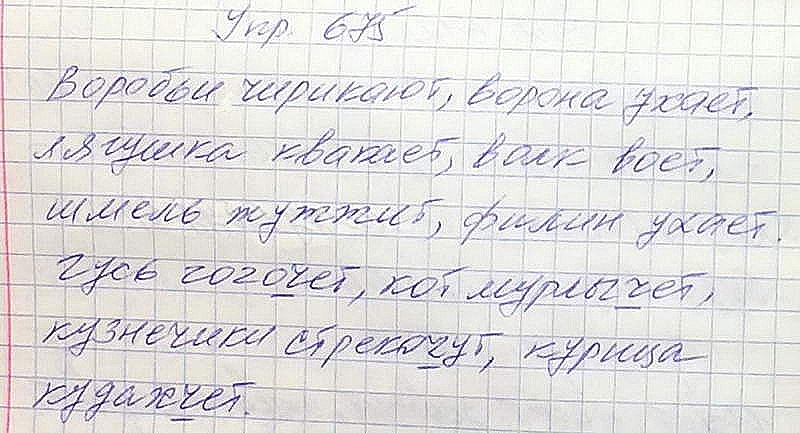 Упр. 675
Воробьи чирикают, ворона ухает,
лягушка квакает, волк воет,
шмель жужжит, филин ухает.
гусь гогочет, кот мурлычет,
кузнечики стрекочут, курица
кудахчет.